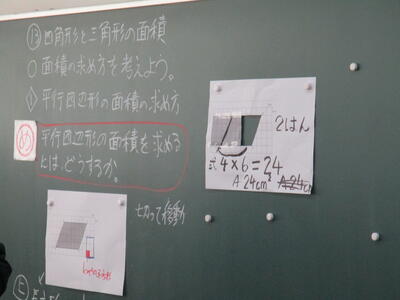 ⑬四角形と三角形の面積
○面積の求め方を考えよう。
① 平行四辺形の面積の求め方
め
平行四辺形の面積を求める
には どうするか。
2はん
式 4×6=24
A 24cm²
切って移動